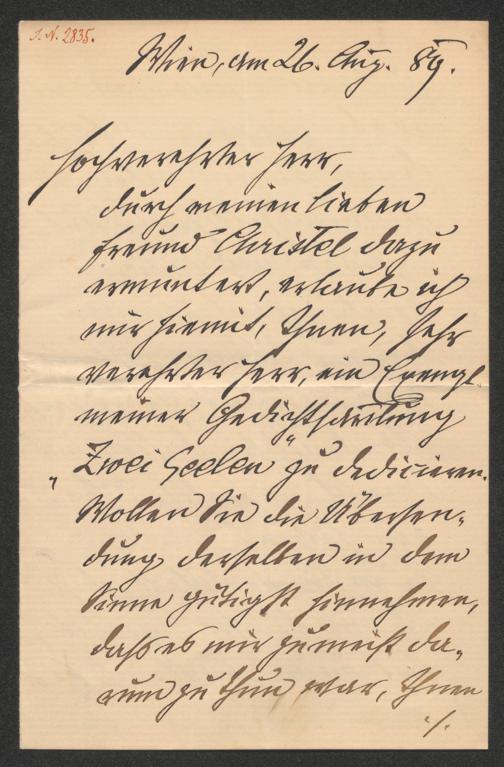 I. N. 2835.
Wien, am 26. Aug. 89.
Hochverehrter Herr,
durch meinen lieben
Freund Christel dazu
ermuntert, erlaube ich
mir hiemit, Ihnen, sehr
verehrter Herr, ein Exempl.
meiner Gedichtsammlung
„Zwei Seelen" zu dedicieren.
Wollen Sie die Übersen-
dung derselben in dem
Sinne gütigst hinnehmen,
dass es mir zumeist da-
rum zu thun war, Ihnen
./.